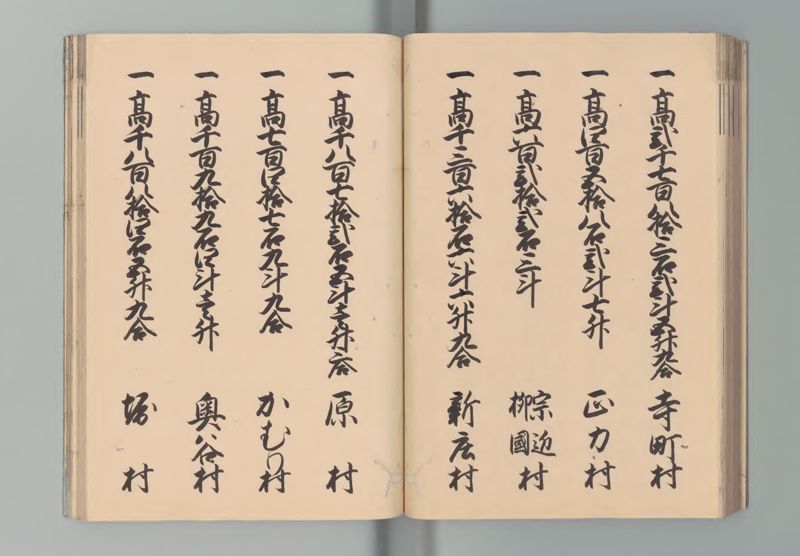 一高弐千七百八拾三石弐斗五升九合 寺町村
一高四百五拾八石弐斗七升 正力村
一高六百弐拾弐石三斗 宗近柳國村
一高千三百六拾石六斗六升九合 新庄村
一高千八百七拾弐石五斗壱升六合 原村
一高七百四拾七石九斗九合 かむり村
一高千百九拾九石四斗壱升 奥谷村
一高千八百八拾四石五升九合 堀村